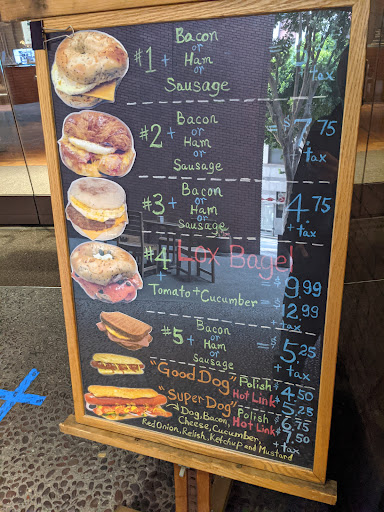 #1 + Bacon
or
Ham
or
Sausage
+ tax
#2 + Bacon
or
Ham
or
Sausage
= $7.75
+ tax
#3 + Bacon
or
Ham
or
Sausage
= 4.75
+ tax
#4 Lox Bagel
+
= $9.99
Tomato + Cucumber = $12.99
+ tax
#5 + Bacon
or
Ham
or
Sausage
= $5.25
+ tax
"Good Dog" Polish $4.50
Hot Link $5.25
"Super Dog" Polish $6.75
Hot Link $7.50
+ tax
Dog, Bacon,
Cheese, Cucumber,
Red Onion, Relish, Ketchup and Mustard